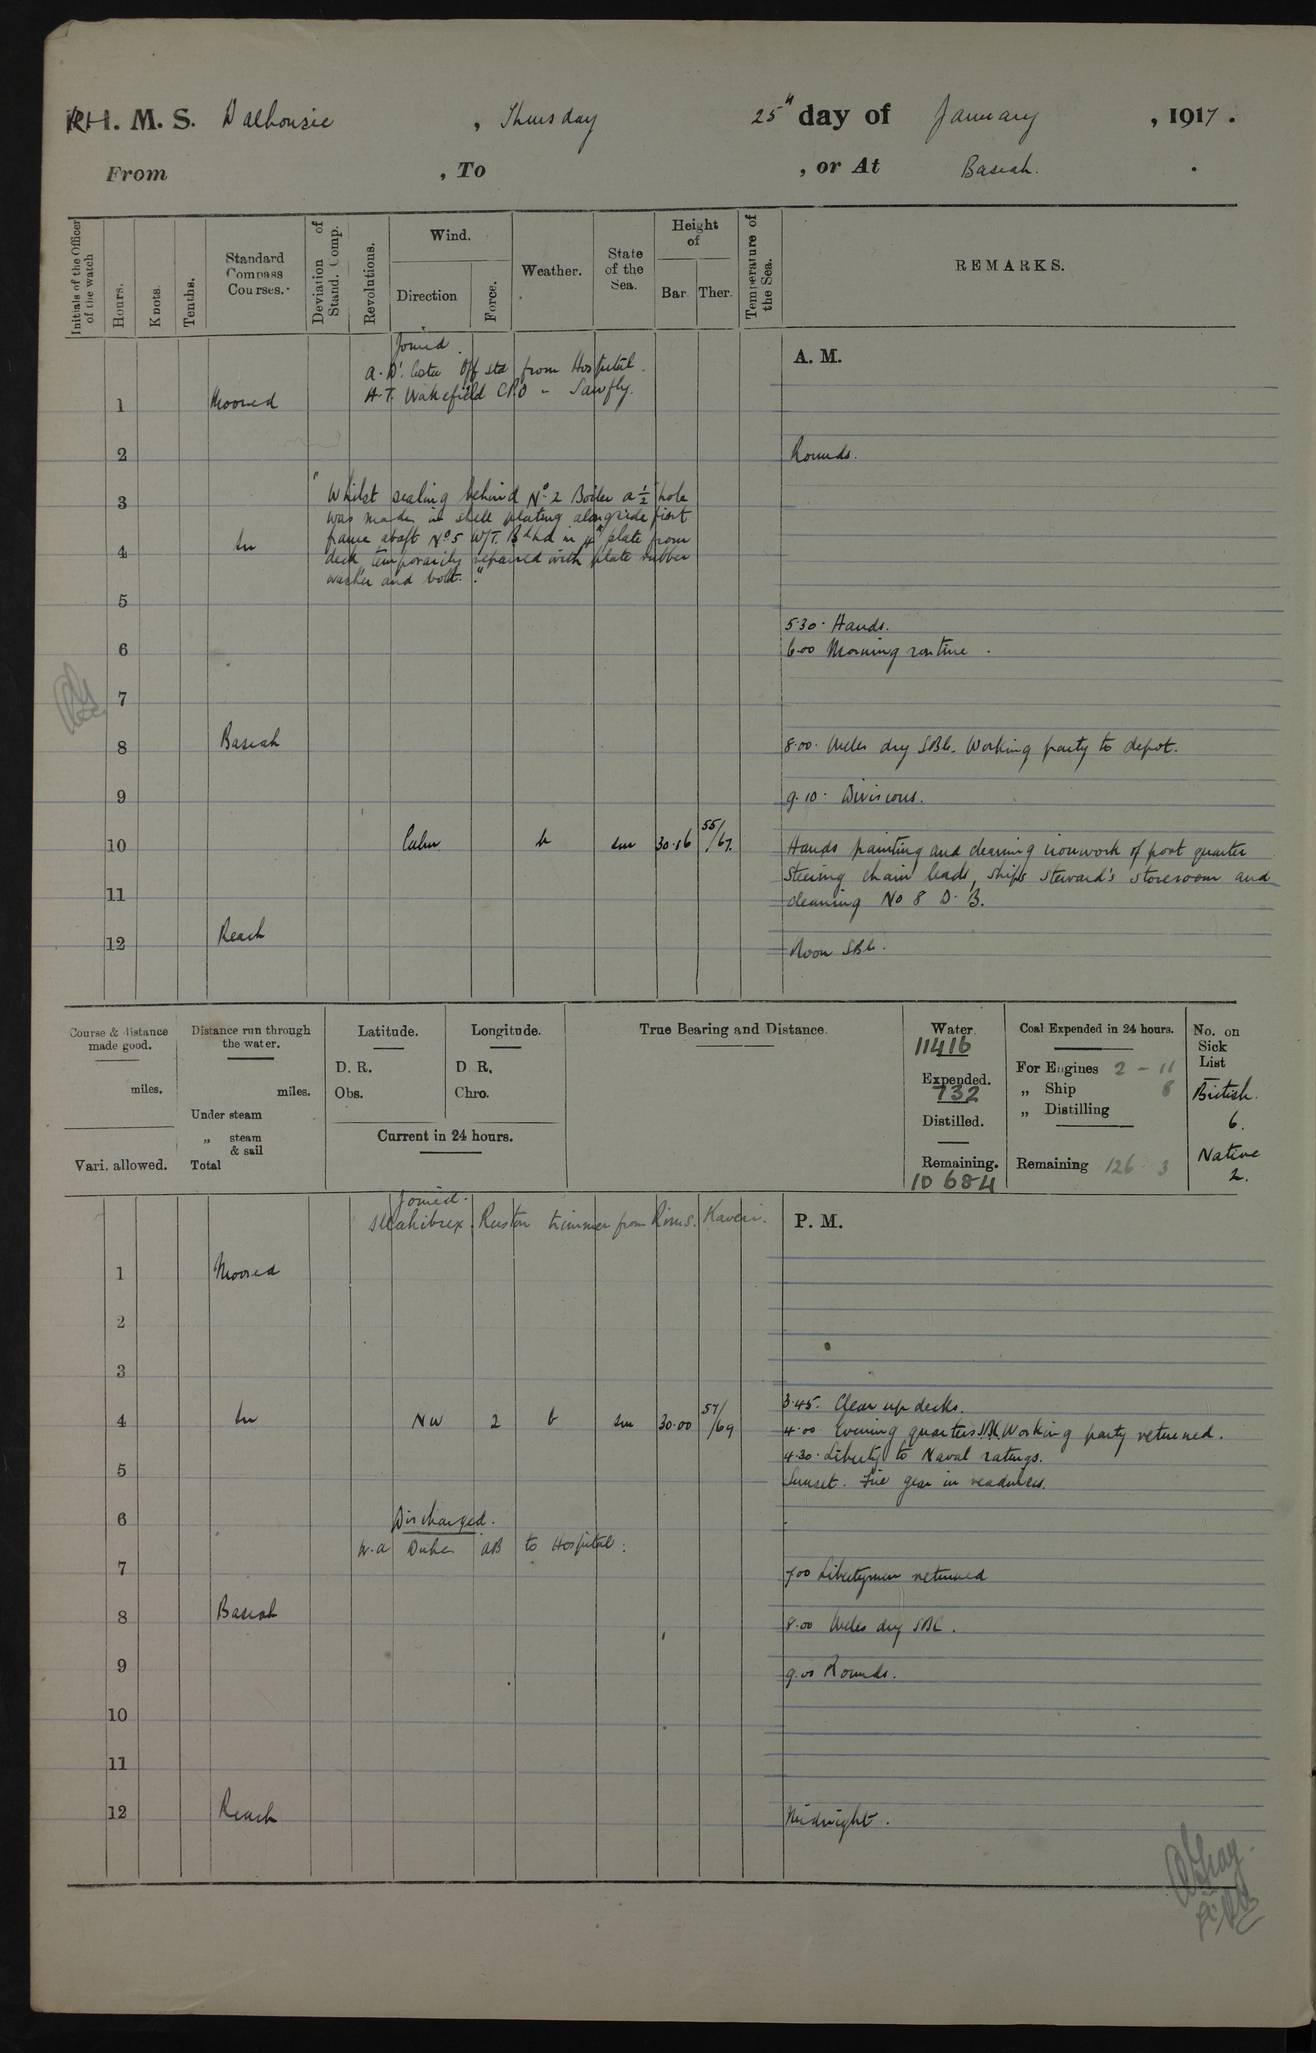 R.I.M.S. Dalhousie , Thursday 25th day of January , 1917.
From , To , or At Basrah.
Initials of the Officer of the watch
Hours.
Knots.
Tenths.
Standard Compass Courses.
Deviation of Stand. Comp.
Revolutions.
Wind.
Direction
Force.
Weather.
State of the Sea.
Height of
Bar. Ther.
Temperature of the Sea.
REMARKS.
Joined
A. M.
Off std from Hospital.
H.T. Wakefield CPO " Sawfly.
1 Moored
2 Rounds.
"Whilst scaling behind No 2 Boiler a ½" hole
3
was made in shell plating alongside first
frame abaft No 5 W/T. Bdhd in 4th plate from
4 In
deck temporarily repaired with plate rubber
washer and bolt."
5
5.30. Hands.
6 6.00 Morning routine.
7
8 Basrah 8.00. Wells dry SBC. Working party to depot.
9 9.10. Divisions.
10 Calm b sm 30.16 55/67. Hands painting and cleaning ironwork of port quarter
steering chain leads, ship's steward's storeroom and
11 cleaning No 8 D. B.
12 Reach Noon SBC.
Course & distance made good.
miles.
Vari. allowed.
Distance run through the water.
miles.
Under steam
„ steam & sail
Total
Latitude.
D. R.
Obs.
Longitude.
D. R.
Chro.
Current in 24 hours.
True Bearing and Distance.
Water.
11416
Expended.
732
Distilled.
Remaining.
10684
Coal Expended in 24 hours.
For Engines 2 - 11
„ Ship 8
„ Distilling
Remaining 126 3
No. on Sick List
British.
6.
Native
2.
Joined.
trimmer from Rims. Kaveri.
P. M.
1 Moored
2
3
3.45. Clear up decks.
4 In NW 2 b sm 30.00 57/69 4.00 Evening quarters SBC. Working party returned.
4.30. Liberty to Naval ratings.
5 Sunset. Fire gear in readiness.
6 Discharged.
W.A Duke AB to Hospital.
7 7.00 Libertymen returned
8 Basrah 8.00 Wells dry SBC.
9 9.00 Rounds.
10
11
12 Reach Midnight.